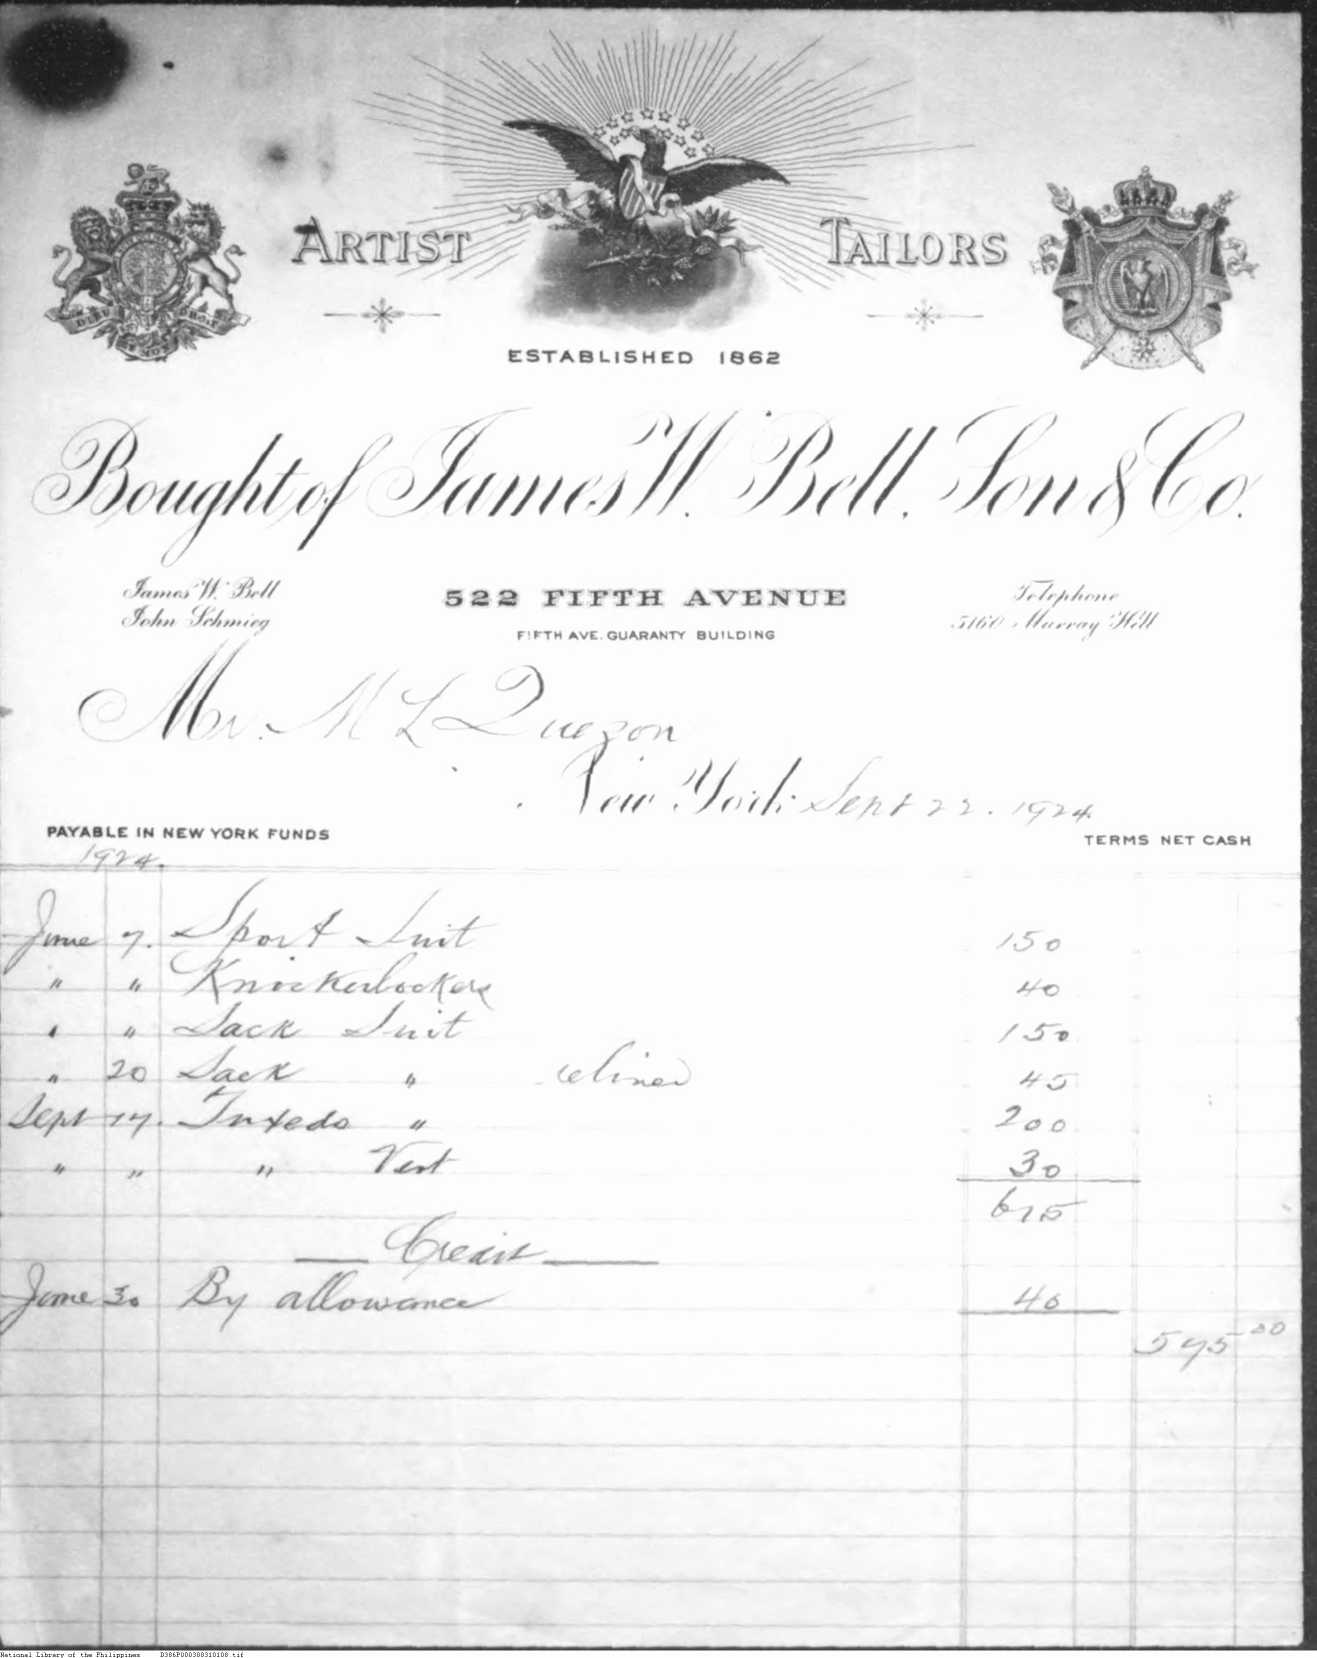 ARTIST TAILORS
DIEU ET MON DROIT
ESTABLISHED 1862
Bought of James W. Bell, Son & Co.
James W. Bell
John Schmieg
522 FIFTH AVENUE
FIFTH AVE. GUARANTY BUILDING
Telephone
5160 Murray Hill
Mr. M L Quezon
New York Sept 22. 1924
PAYABLE IN NEW YORK FUNDS
TERMS NET CASH
1924.
June 7. Sport Suit 150
" " Knickerbockers 40
" " Sack Suit 150
" 20 Sack " 45
Sept 17. Tuxedo " 200
" " " Vest 30
615
Credit
June 30 By allowance 40
575 00
National Library of the Philippines D386P000300310100.tif